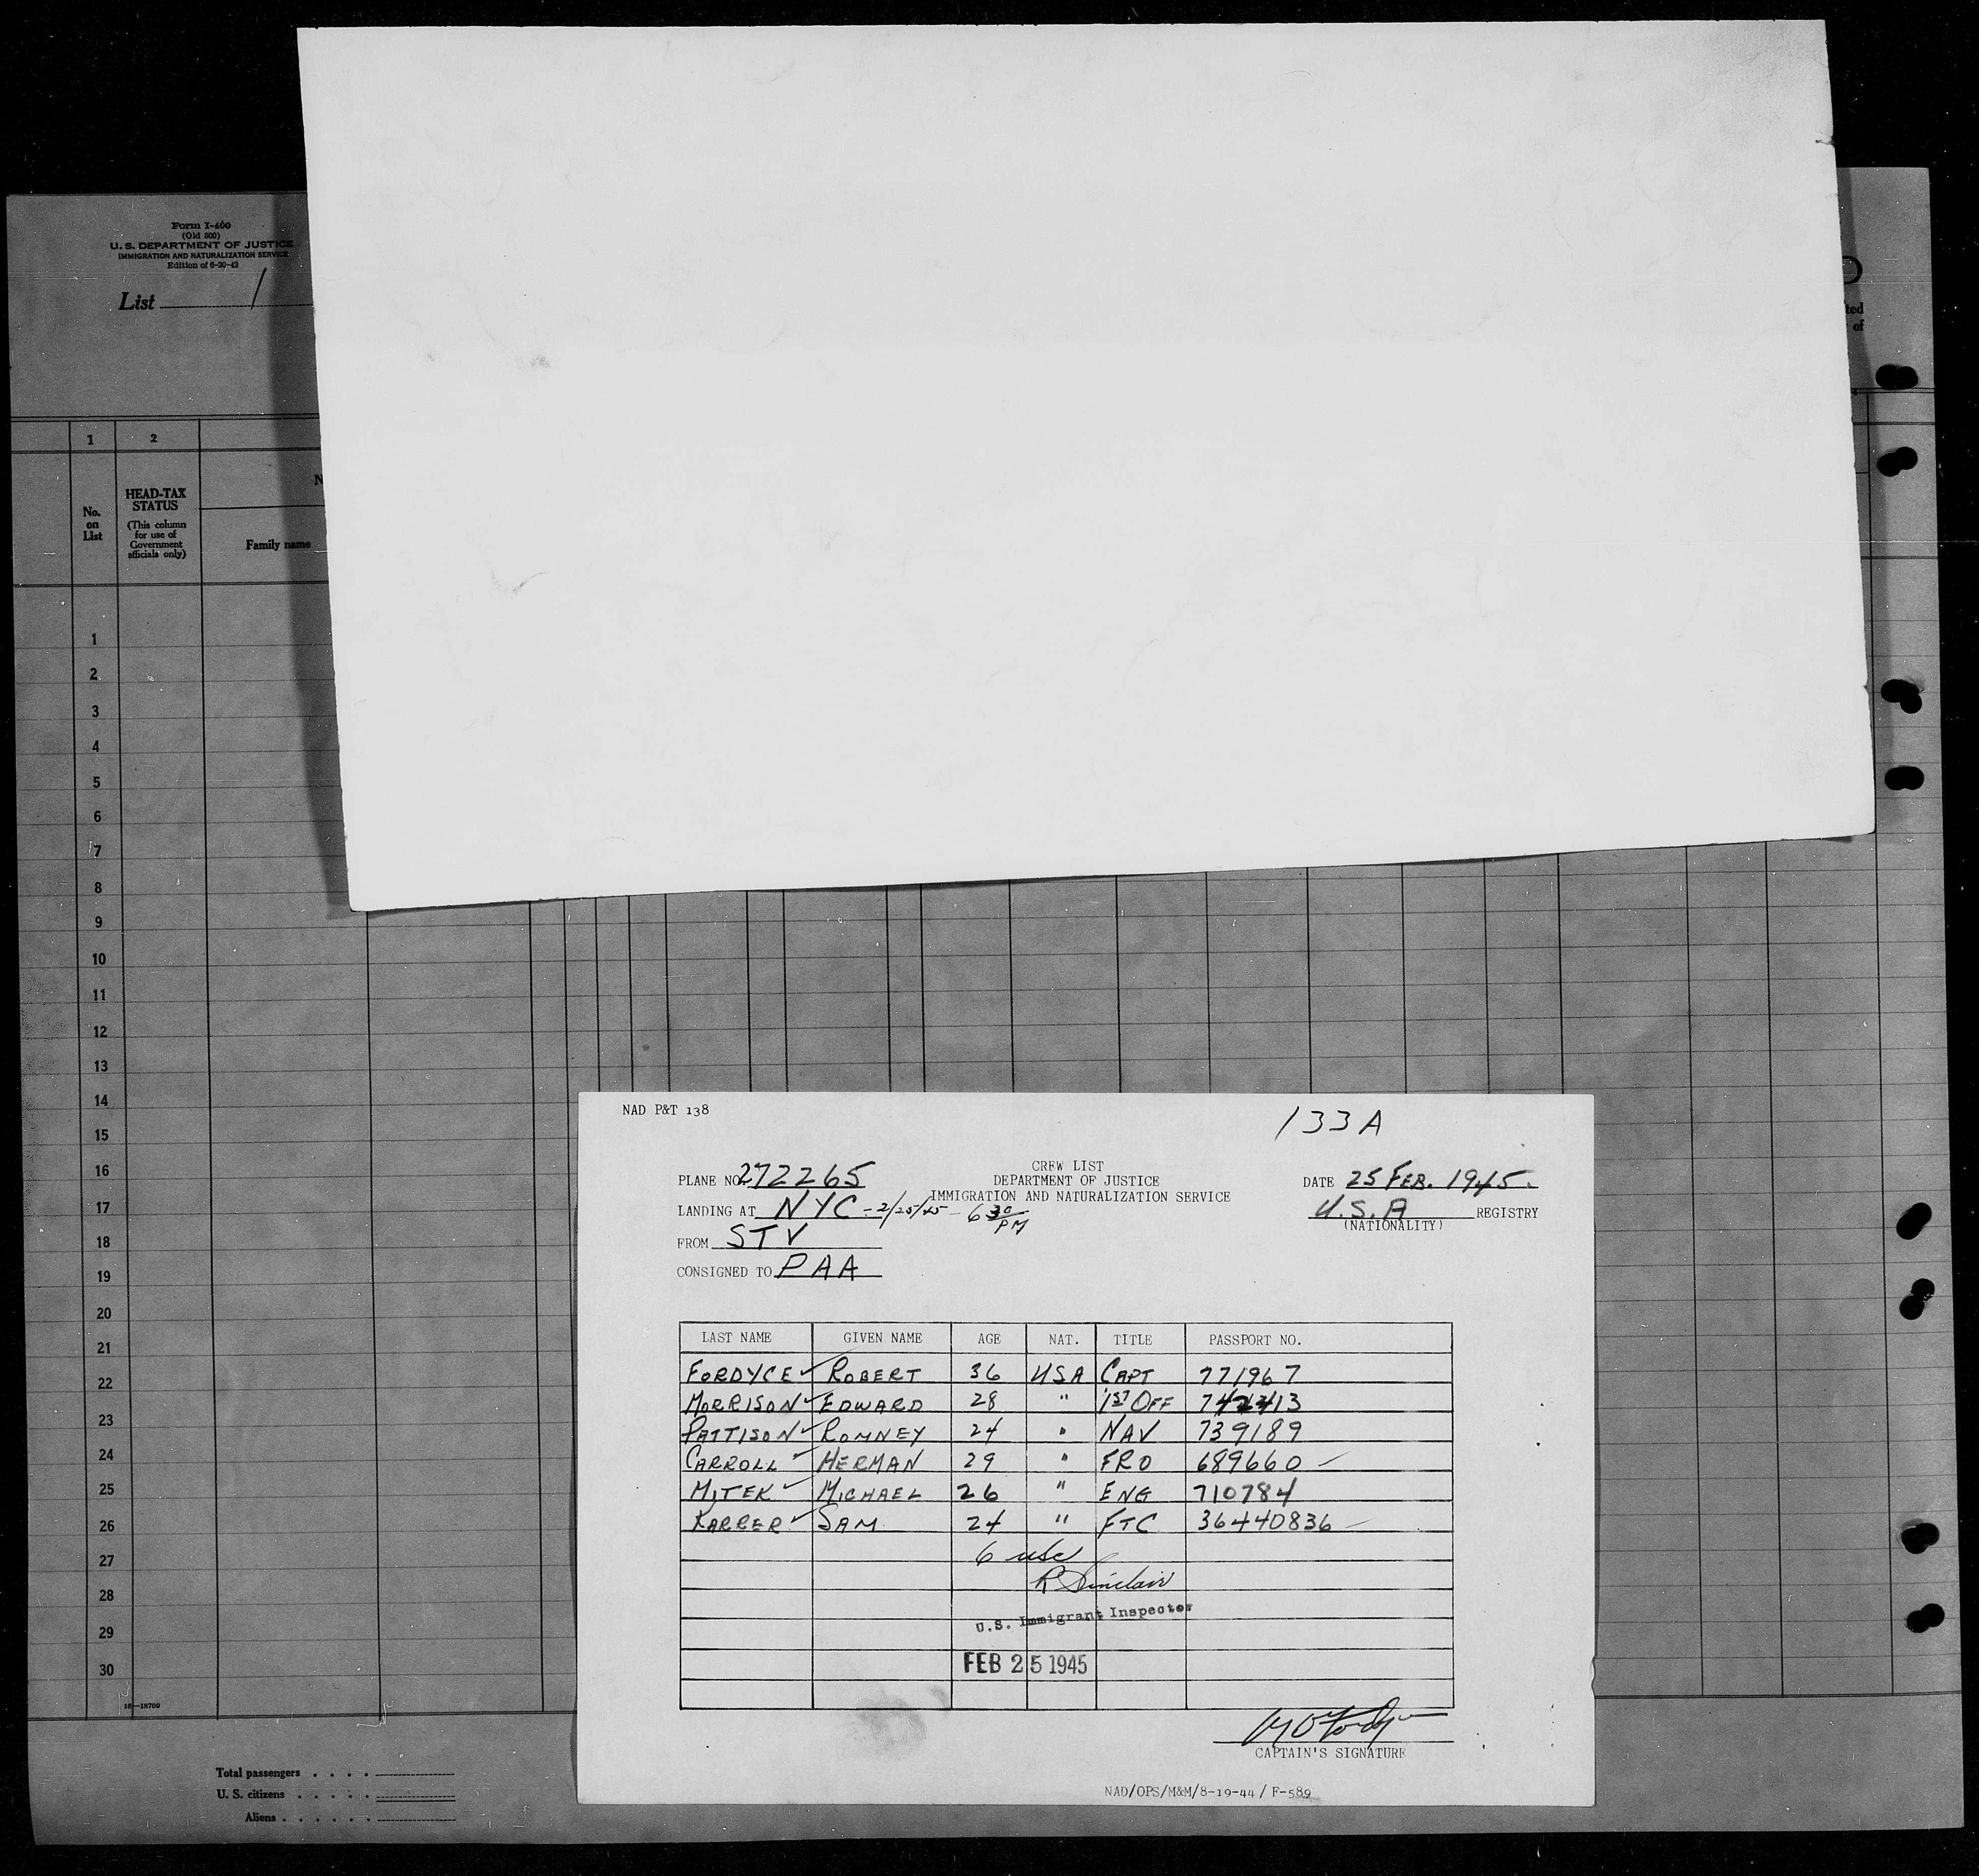 Form I-400
(Old 500)
U. S. DEPARTMENT OF JUSTICE
IMMIGRATION AND NATURALIZATION SERVICE
Edition of 6-20-42
List 1
ted
of
1 2
No. on List
HEAD-TAX STATUS
(This column for use of Government officials only)
Family name
1
2
3
4
5
6
7
8
9
10
11
12
13
14
15
16
17
18
19
20
21
22
23
24
25
26
27
28
29
30
16—18700
Total passengers . . . .
U. S. citizens . . . . .
Aliens . . . . . .
NAD P&T 138
133A
CREW LIST
PLANE NO. 272265 DEPARTMENT OF JUSTICE DATE 25 FEB. 1945.
IMMIGRATION AND NATURALIZATION SERVICE
LANDING AT NYC - 2/25/45 - 6 30 PM U.S.A REGISTRY
(NATIONALITY)
FROM STV
CONSIGNED TO PAA
LAST NAME GIVEN NAME AGE NAT. TITLE PASSPORT NO.
FORDYCE ROBERT 36 USA CAPT 771967
MORRISON EDWARD 28 " 1ST OFF
PATTISON ROMNEY 24 " NAV 739189
CARROLL HERMAN 29 " FRO 689660
MITEK MICHAEL 26 " ENG 710784
KARRER SAM 24 " FTC 36440836
6 usc
R Sinclair
U.S. Immigrant Inspector
FEB 25 1945
CAPTAIN'S SIGNATURE
NAD/OPS/M&M/8-19-44 / F-589